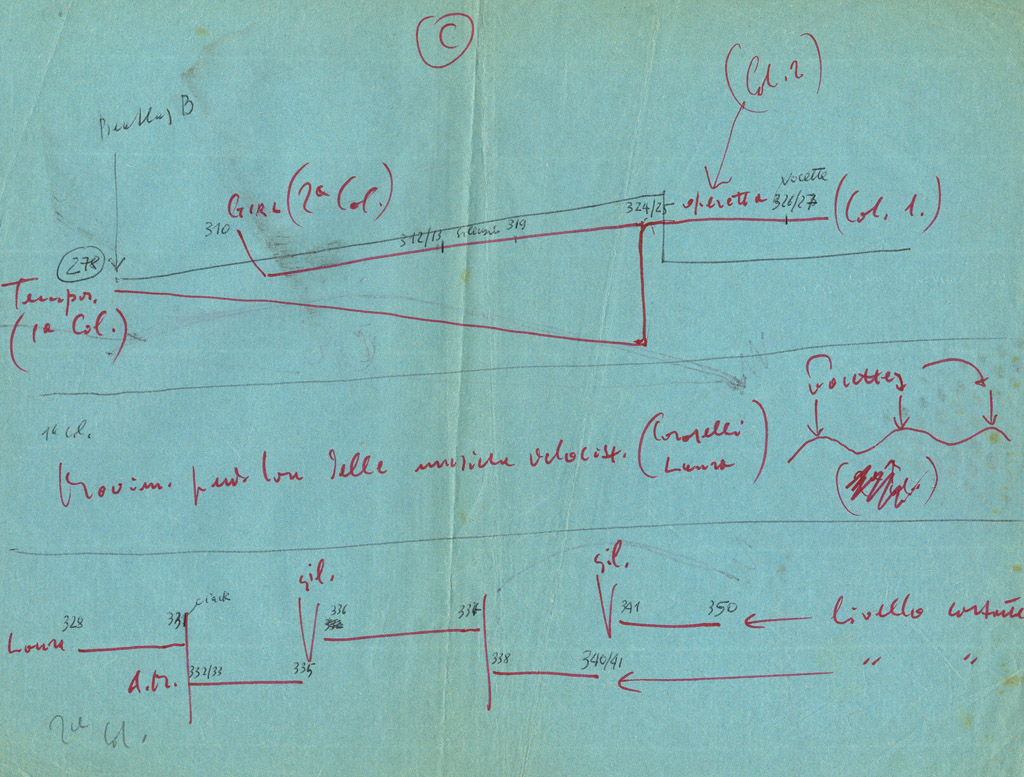 C
(Col. 2)
B
GIRL (2ª Col.)
310
312/13
silenzio
319
324/25
operetta
Vocette
326/27
(Col. 1.)
278
Tempor.
(1ª Col.)
1ª Col.
delle musiche velociss. (Caroselli
Laura)
vocettes
sil.
sil.
Laura
328
331
ciack
336
337
341
350
livello costante
332/33
335
338
340/41
" "
2ª Col.